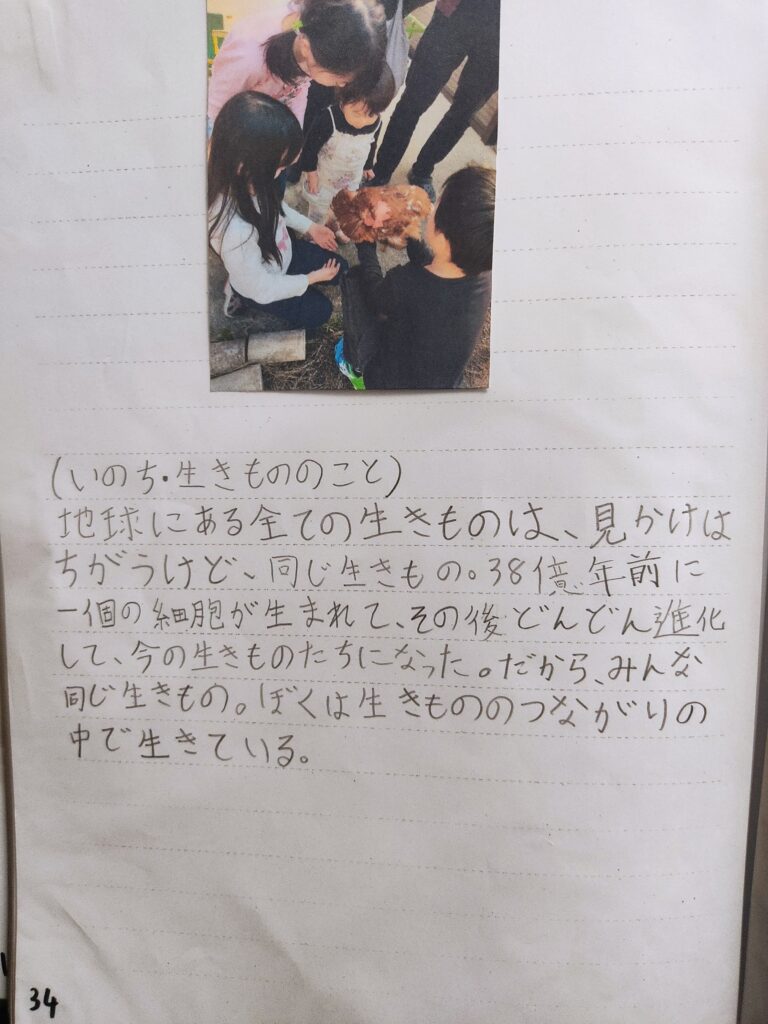 (いのち・生きもののこと)
地球にある全ての生きものは、見かけは
ちがうけど、同じ生きもの。38億年前に
一個の細胞が生まれて、その後どんどん進化
して、今の生きものたちになった。だから、みんな
同じ生きもの。ぼくは生きもののつながりの
中で生きている。
34